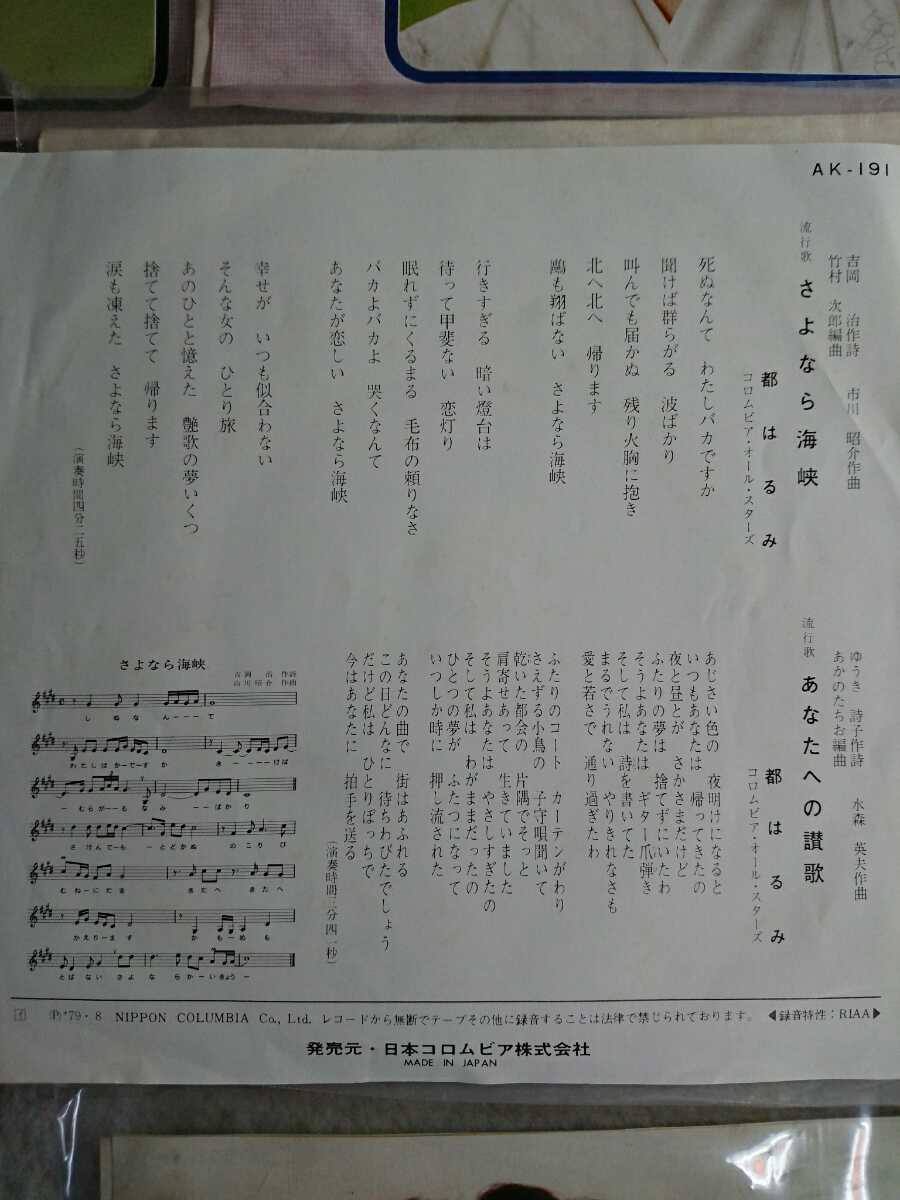 AK-191
吉岡 治作詩 市川 昭介作曲
竹村 次郎編曲
流行歌 さよなら海峡
都はるみ
コロムビア・オール・スターズ
死ぬなんて わたしバカですか
聞けば群らがる 波ばかり
叫んでも届かぬ 残り火胸に抱き
北へ北へ 帰ります
鷗も翔ばない さよなら海峡
行きすぎる 暗い燈台は
待って甲斐ない 恋灯り
眠れずにくるまる 毛布の頼りなさ
バカよバカよ 哭くなんて
あなたが恋しい さよなら海峡
幸せが いつも似合わない
そんな女の ひとり旅
あのひとと憶えた 艶歌の夢いくつ
捨てて捨てて 帰ります
涙も凍えた さよなら海峡
(演奏時間四分二五秒)
ゆうき 詩子作詩 水森 英夫作曲
あかのたちお編曲
流行歌 あなたへの讃歌
都はるみ
コロムビア・オール・スターズ
あじさい色の 夜明けになると
いつもあなたは 帰ってきたの
夜と昼とが さかさまだけど
ふたりの夢は 捨てずにいたわ
そうよあなたは ギター爪弾き
そして私は 詩を書いてた
まるでうれない やりきれなさも
愛と若さで 通り過ぎたわ
ふたりのコート カーテンがわり
さえずる小鳥の 子守唄聞いて
乾いた都会の 片隅でそっと
肩寄せあって 生きていました
そうよあなたは やさしすぎたの
そして私は わがままだったの
ひとつの夢が ふたつになって
いつしか時に 押し流された
あなたの曲で 街はあふれる
この日どんなに 待ちわびたでしょう
だけど私は ひとりぼっちで
今はあなたに 拍手を送る
(演奏時間三分四一秒)
さよなら海峡
吉岡 治 作詩
市川昭介 作曲
しぬなんーーーて
わたしばかーでーすか きーーーーけば
ーむらがーーる なみ ーーばかり
さけんでーも ーとどかぬ のこりび
むねーにだき きたへ きたへ
かえりーます かもーめも
とばない さよならかーいきょうー
Ⓟ'79・8 NIPPON COLUMBIA Co., Ltd. レコードから無断でテープその他に録音することは法律で禁じられております。 ◀録音特性:RIAA▶
発売元・日本コロムビア株式会社
MADE IN JAPAN